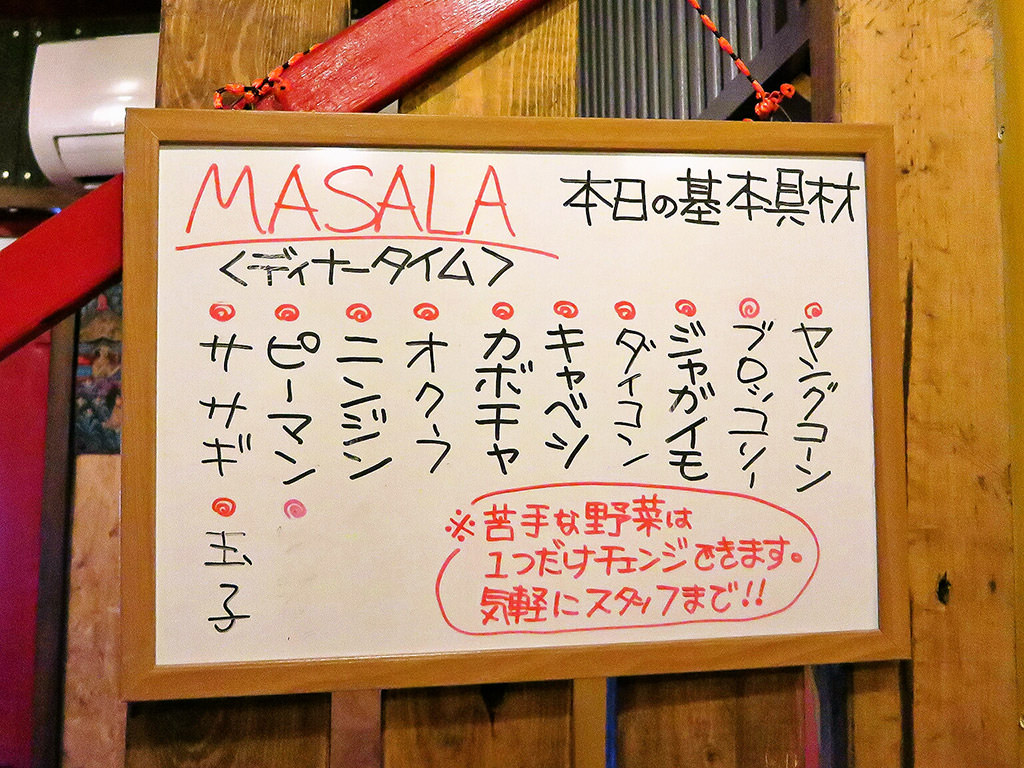 MASALA
本日の基本具材
<ディナータイム>
ヤングコーン
ブロッコリー
ジャガイモ
ダイコン
キャベツ
カボチャ
オクラ
ニンジン
ピーマン
ササギ
玉子
※苦手な野菜は
1つだけチェンジできます。
気軽にスタッフまで!!